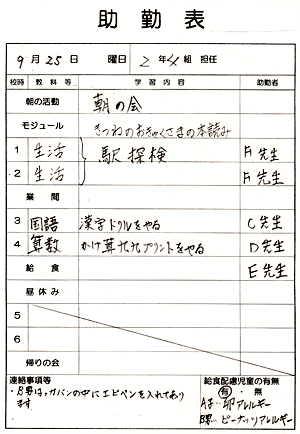 助勤表
9月25日 曜日 2年4組 担任
校時 教科等 学習内容 助勤者
朝の活動 朝の会
モジュール きつねのおきゃくさまの本読み
1 生活 駅探検 F先生
2 生活 F先生
業間
3 国語 漢字ドリルをやる C先生
4 算数 かけ算九九プリントをやる D先生
給食 E先生
昼休み
5
6
帰りの会
連絡事項等 給食配慮児童の有無
・B男はカバンの中にエピペンを入れてあり 有・無
ます A子‥卵アレルギー
B男‥ピーナッツアレルギー